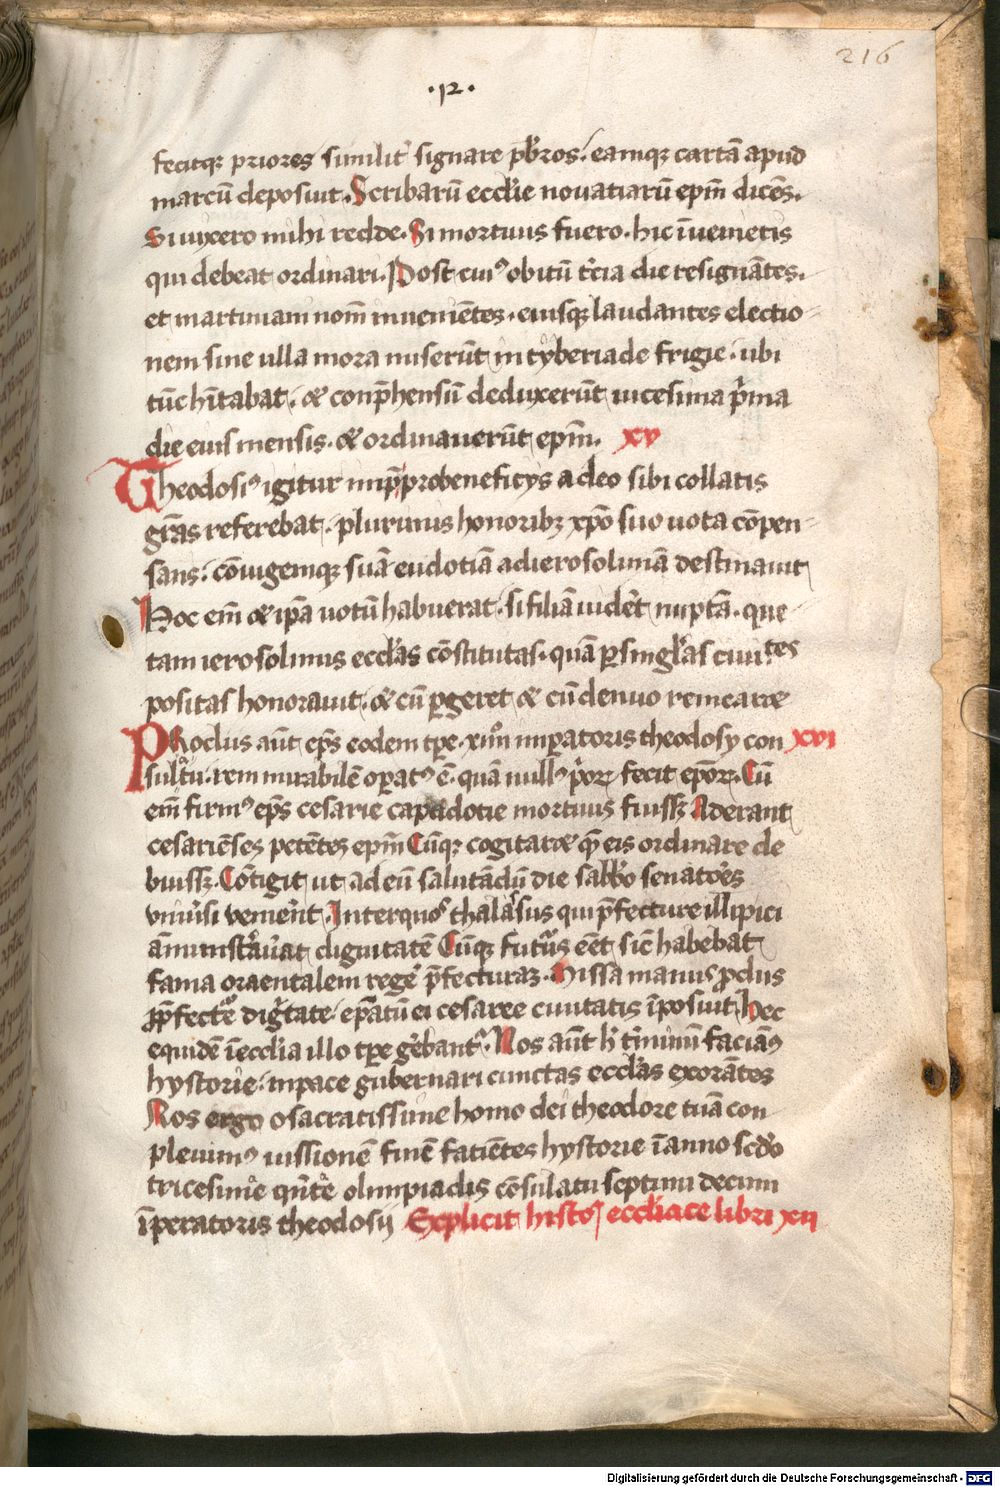 216
·12·
fecitqꝫ priores similit᷑ signare p̄bros. eamqꝫ cartā apud
marcū deposiuit. Scribarū eccl̄ie nouatiarū ep̄m dicēs.
Si uixero mihi redde. Si mortuus fuero. hic īuenietis
qui debeat ordinari. Post cuiꝰ obitū t̄cia die resignātes.
et martiniam nom̄ inueniētes. eiusqꝫ laudantes electio-
nem sine ulla mora miserūt in tyberiade frigie. ubi
tūc h̄itabat. & conp̄hensū deduxerūt uicesima p̄ma
die eius mensis. & ordinauerūt ep̄m. xv
Theodosiꝰ igitur imp̄r pro beneficijs a deo sibi collatis
gr̄as referebat. plurimis honoribꝫ xp̄o suo uota cōpen-
sans. cōiugemqꝫ suā eudotiā ad ierosolimā destinauit
Hoc em̄ & ip̄a uotū habuerat. si filiā uider̄t nuptā. que
tam ierosolimis eccl̄as cōstitutas. quā ꝑ singl̄as ciuitates
positas honorauit. & cū ꝑgeret & cū denuo remearet
Proclus aūt ep̄s eodem tp̄e. xiiiī imꝑatoris theodosij con xvi
sultū. rem mirabilē oꝑatꝰ ē. quā nullꝰ p̄oꝝ fecit ep̄oꝝ. Cū
em̄ firmꝰ ep̄s cesarie capadotie mortuus fuissꝫ Aderant
cesariēses petētes ep̄m Cūqꝫ cogitaret q̄m eis ordinare de
buissꝫ. Cōtigit ut ad eū salutādū die sabb̄o senatōes
vniūsi venier̄t. Inter quos thalasius qui p̄fecture illipici
āministrauāt dignitatē Cūqꝫ futūs eēt sic̄ habebat
fama oraentalem regē p̄fecturaꝫ. Missa manus proclus
p̄p̄fecte᷑ dig᷑tate. ep̄atū ei cesaree ciuitatis īposuit. Hec
equidē ī eccl̄ia illo tp̄e gēbant᷑. Nos aūt h̄ t̄minū faciāꝰ
hystorie. in pace gubernari cunctas eccl̄as exorātes
Nos ergo o sacratissime homo dei theodore tuā con
pleuimꝰ iussionē finē fatiētes hystorie ī anno sc̄do
tricesime q̄nte olimpiadis cōsulatu septimi decimi
īperatoris theodosij Explicit histoꝝ eccl̄iace libri xii
Digitalisierung gefördert durch die Deutsche Forschungsgemeinschaft - DFG